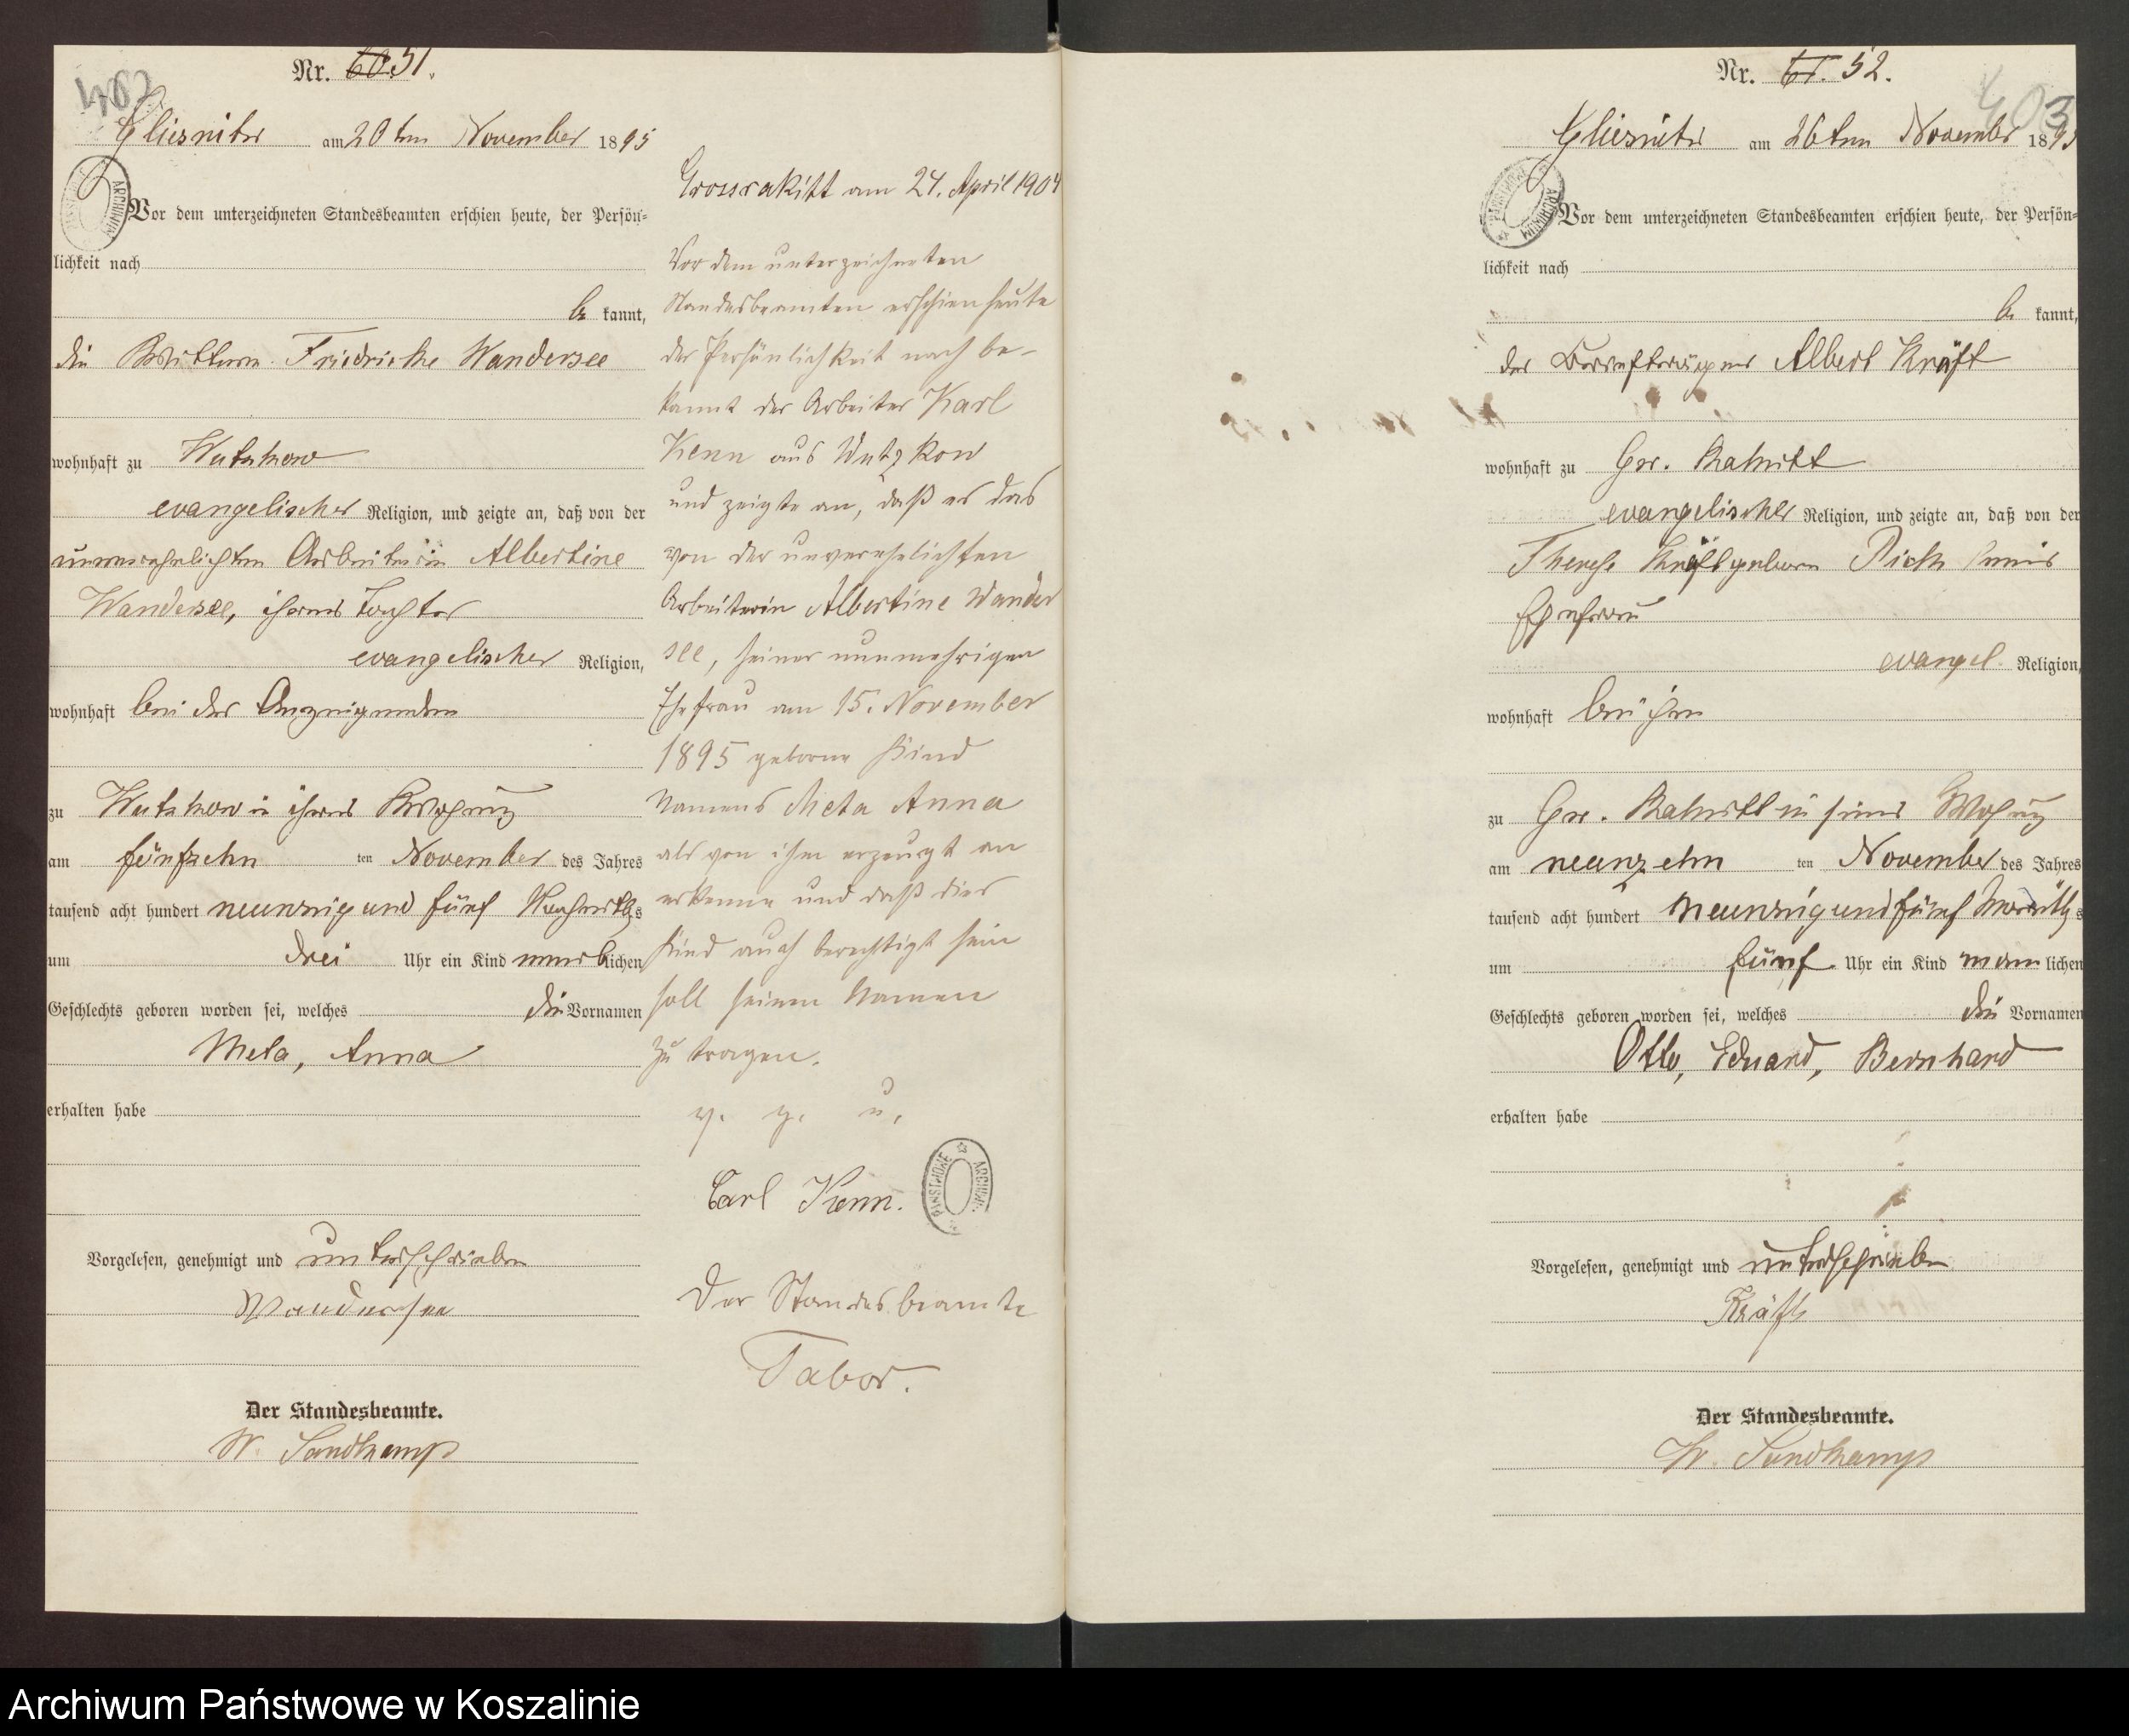 402
Nr. 60 51.
Gliesnitz am 20ten November 1895
Vor dem unterzeichneten Standesbeamten erschien heute, der Persön-
lichkeit nach
be kannt,
die Wittwe Friedricke Wandersee
wohnhaft zu Wutzkow
evangelischer Religion, und zeigte an, daß von der
unverehelichten Arbeiterin Albertine
Wandersee, ihrer Tochter
evangelischer Religion,
wohnhaft bei der Anzeigenden
zu Wutzkow in ihrer Wohnung
am fünfzehn ten November des Jahres
tausend acht hundert neunzig und fünf Nachmittags
um drei Uhr ein Kind weiblichen
Geschlechts geboren worden sei, welches die Vornamen
Meta, Anna
erhalten habe
Vorgelesen, genehmigt und unterschrieben
Wandersee
Der Standesbeamte.
W. Sandkamp
Grossrakitt am 24. April 1904
Vor dem unterzeichneten
Standesbeamten erschien heute
der Persönlichkeit nach be-
kannt der Arbeiter Karl
Kenn aus Wutzkow
und zeigte an, daß er das
von der unverehelichten
Arbeiterin Albertine Wander
see, seiner nunmehrigen
Ehefrau am 15. November
1895 geborne Kind
Namens Meta Anna
als von ihm erzeugt an
erkenne und daß dies
Kind auch berechtigt sein
soll seinen Namen
zu tragen.
v. g. u.
Carl Kenn.
ARCHIWUM PAŃSTWOWE
Der Standesbeamte
Tabor.
403
Nr. 61. 52.
Gliesnitz am 26ten November 1895
ARCHIWUM PAŃSTWOWE
Vor dem unterzeichneten Standesbeamten erschien heute, der Persön-
lichkeit nach
be kannt,
der Albert Kräft
wohnhaft zu Gr. Rakitt
evangelischer Religion, und zeigte an, daß von der
Therese Kräft geborne Pick seiner
Ehefrau
evangel. Religion,
wohnhaft bei ihm
zu Gr. Rakitt in seiner Wohnung
am neunzehn ten November des Jahres
tausend acht hundert neunzig und fünf Vormittags
um fünf Uhr ein Kind männlichen
Geschlechts geboren worden sei, welches die Vornamen
Otto, Eduard, Bernhard
erhalten habe
Vorgelesen, genehmigt und unterschrieben
Kräft
Der Standesbeamte.
W. Sandkamp
Archiwum Państwowe w Koszalinie